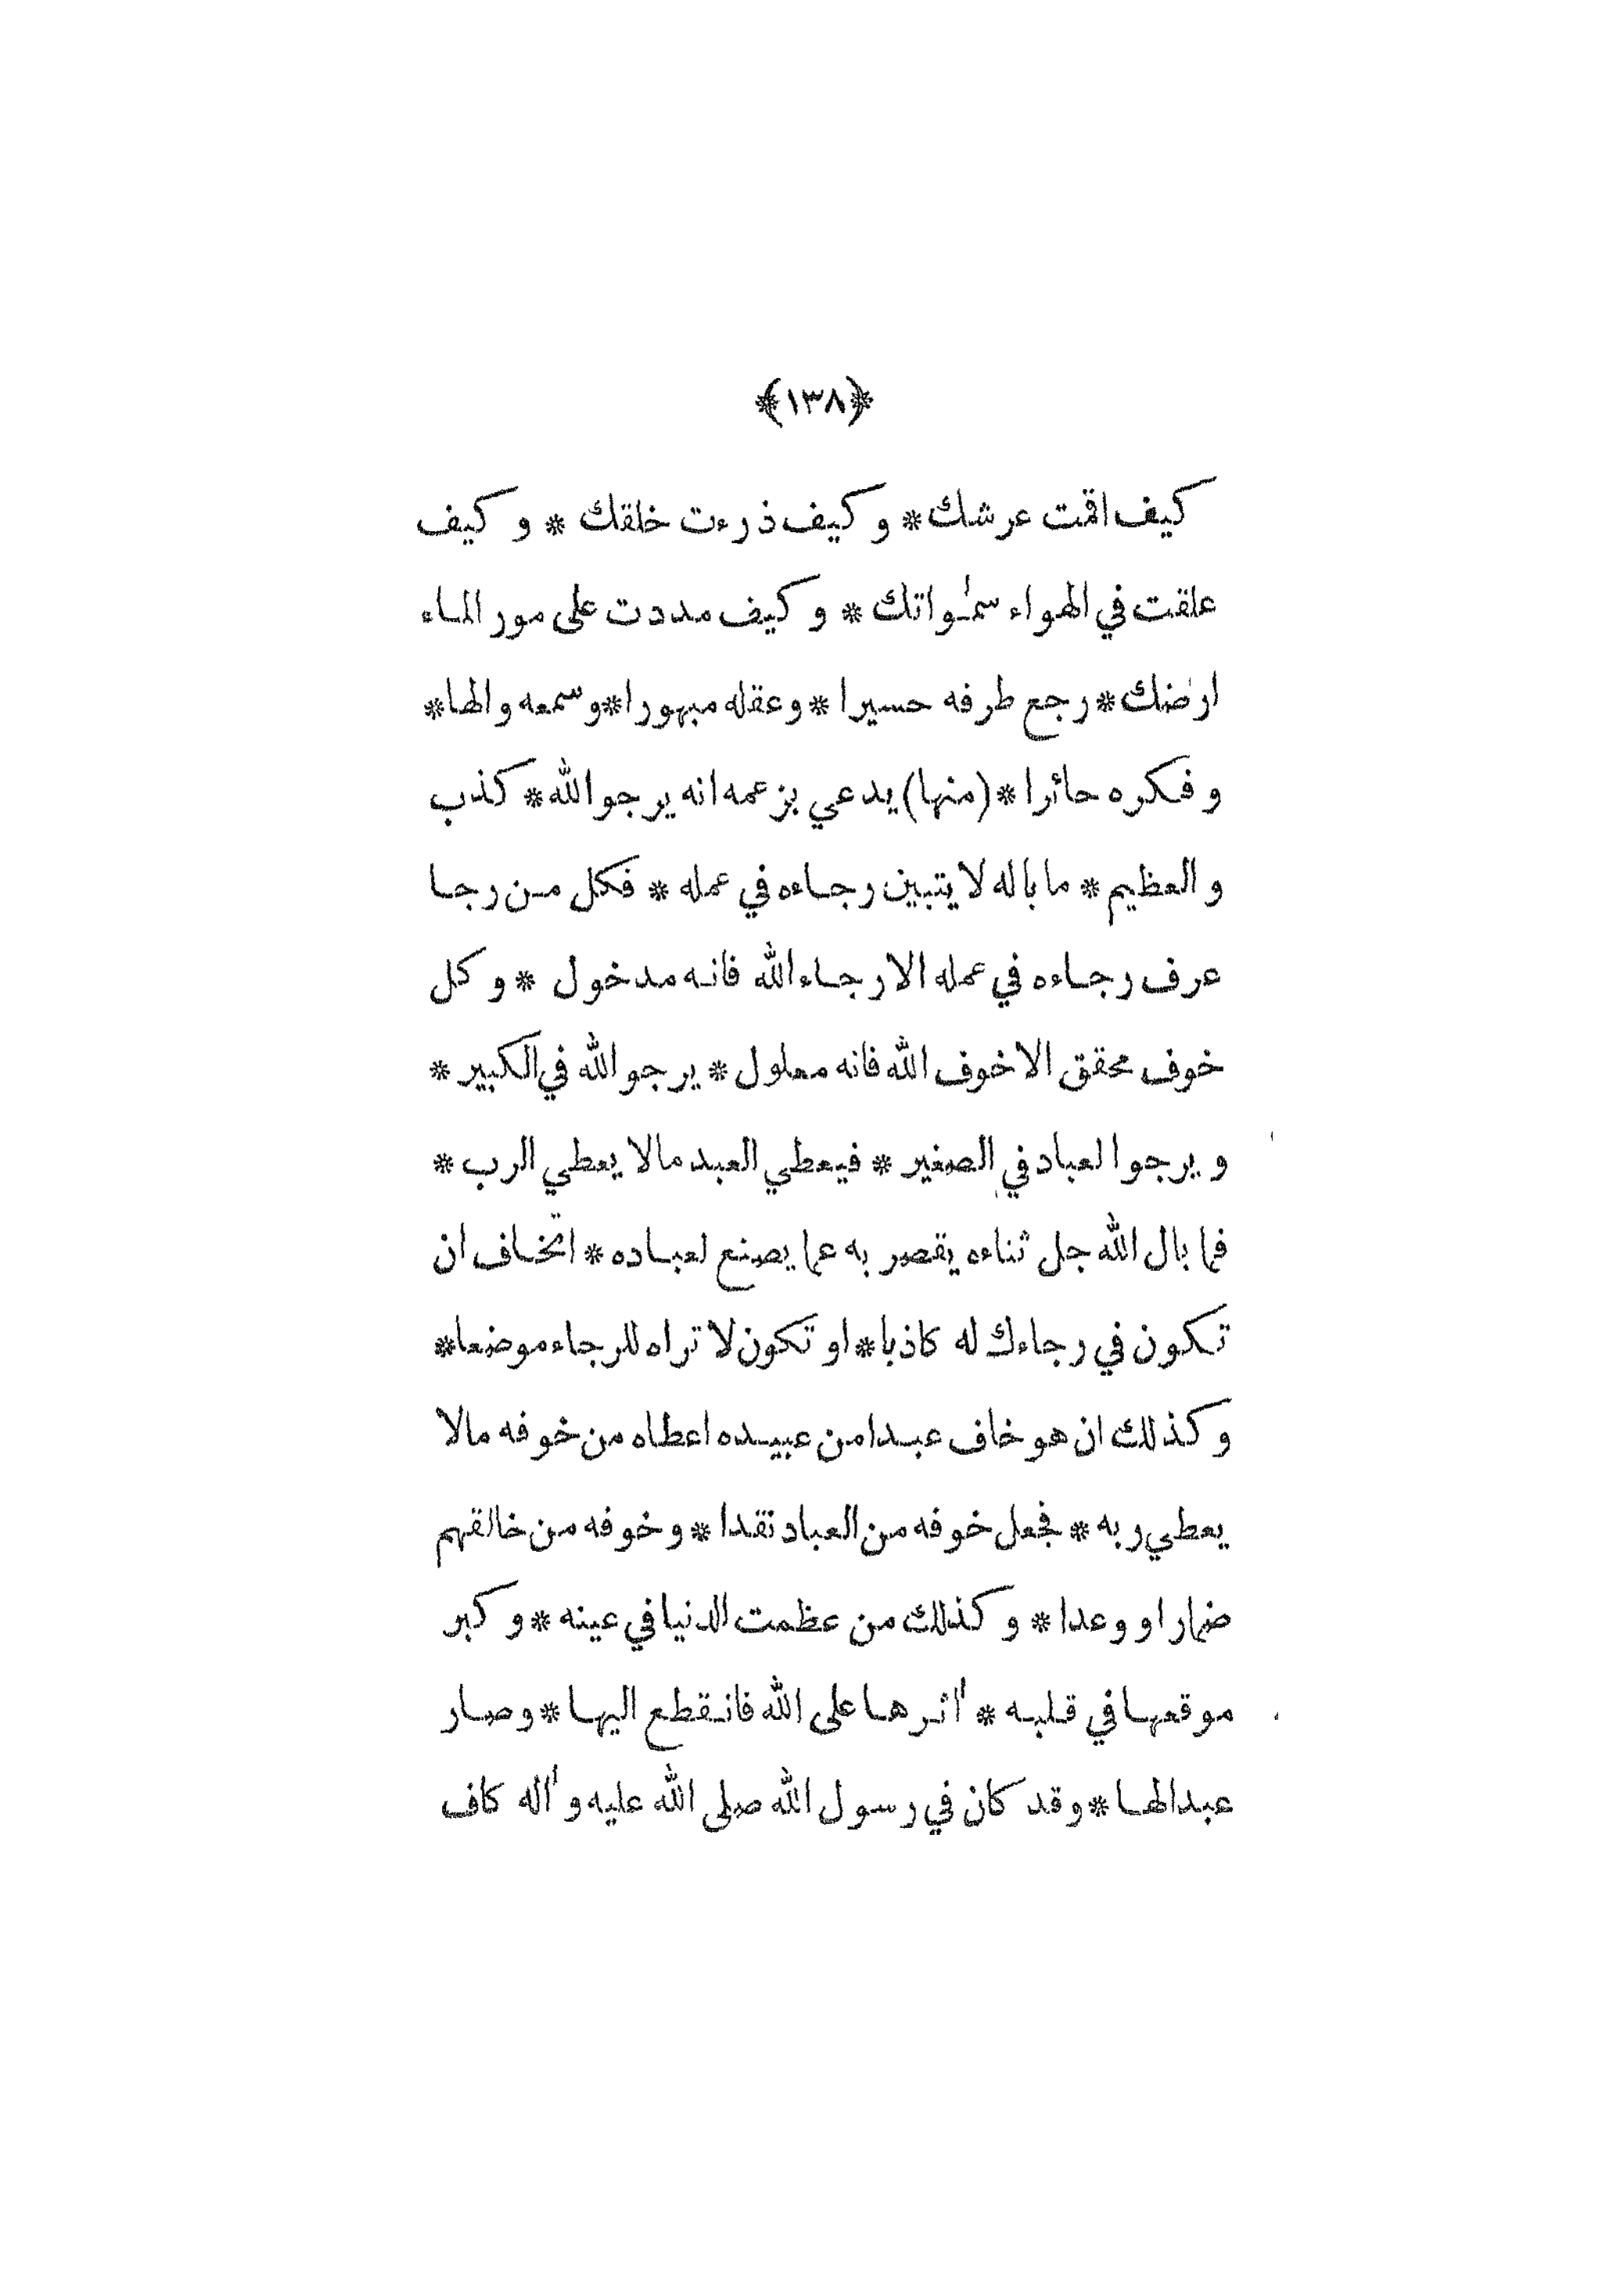 ﴿١٣٨﴾
كيف اقمت عرشك * و كيف ذرءت خلقك * و كيف
علقت في الهواء سمٰواتك * و كيف مددت على مور الماء
ارضك * رجع طرفه حسيرا * وعقله مبهورا * وسمعه والها *
و فكره حائرا * (منها) يدعي بزعمه انه يرجو الله * كذب
و العظيم * ما باله لا يتبين رجاءه في عمله * فكل من رجا
عرف رجاءه في عمله الا رجاء الله فانه مدخول * و كل
خوف محقق الا خوف الله فانه معلول * يرجو الله في الكبير *
و يرجوا لعباد في الصغير * فيعطي العبد مالا يعطي الرب *
فما بال الله جل ثناءه يقصر به عما يصنع لعباده * اتخاف ان
تكون في رجاءك له كاذبا * او تكون لا تراه للرجاء موضعا *
و كذلك ان هو خاف عبدا من عبيده اعطاه من خوفه مالا
يعطي ربه * فجعل خوفه من العباد نقدا * و خوفه من خالقهم
ضمارا و وعدا * و كذلك من عظمت الدنيا في عينه * و كبر
موقعها في قلبه * اٰثرها على الله فانقطع اليها * وصار
عبدا لها * وقد كان في رسول الله صلى الله عليه و اٰله كاف